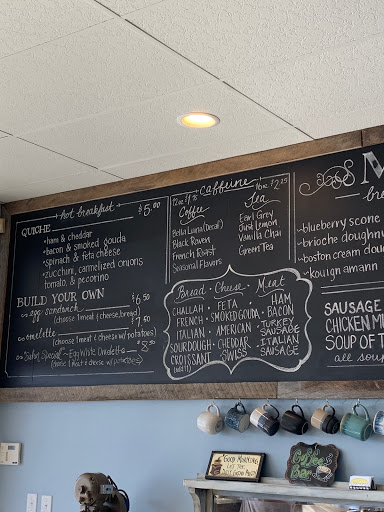 hot breakfast
QUICHE $5.00
• ham & cheddar
• bacon & smoked gouda
• spinach & feta cheese
• zucchini, carmelized onions
tomato, & pecorino
BUILD YOUR OWN
egg sandwich $6.50
(choose 1 meat & cheese, bread)
omelette $7.50
(choose 1 meat & cheese w/ potatoes)
Egg White Omelette $8.50
(choose 1 meat & cheese w/ potatoes)
caffeine
Coffee
Bella Luna (Decaf)
Black Raven
French Roast
Seasonal Flavors
16oz $2.25
Tea
Earl Grey
Just Lemon
Vanilla Chai
Green Tea
Bread • Cheese • Meat
CHALLAH • FETA • HAM
FRENCH • SMOKED GOUDA • BACON
ITALIAN • AMERICAN • TURKEY SAUSAGE
SOURDOUGH • CHEDDAR • ITALIAN SAUSAGE
CROISSANT • SWISS
M
bre
• blueberry scone
• brioche doughnu
• boston cream dou
• kouign amann
SAUSAGE
CHICKEN M
SOUP OF T
all sou
GOOD MORNING
LET THE
Coffee
Bar